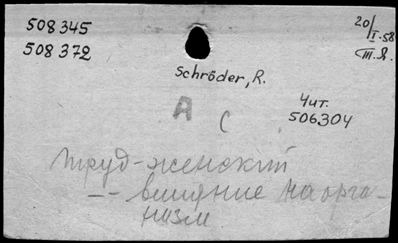 508345
508372
20/I-58
Т.Я.
Schröder, R.
А С
Чит.
506304
Труд-женский
-- влияние на орга-
низм